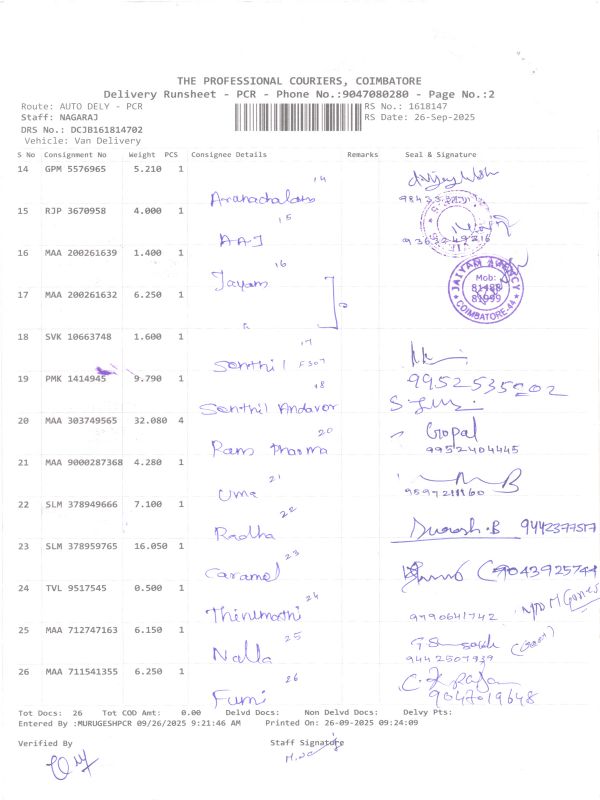 THE PROFESSIONAL COURIERS, COIMBATORE
Delivery Runsheet - PCR - Phone No.:9047080280 - Page No.:2
Route: AUTO DELY - PCR RS No.: 1618147
Staff: NAGARAJ RS Date: 26-Sep-2025
DRS No.: DCJB161814702
Vehicle: Van Delivery
S No Consignment No Weight PCS Consignee Details Remarks Seal & Signature
14 GPM 5576965 5.210 1
14
15 RJP 3670958 4.000 1
15
AAJ
16 MAA 200261639 1.400 1
16
Jayam
JAIYAM AGENCY
Mob:
81488
81999
COIMBATORE-44
17 MAA 200261632 6.250 1
18 SVK 10663748 1.600 1
17
Senthil
19 PMK 1414945 9.790 1
9952535202
18
Senthil Andavar
20 MAA 303749565 32.080 4
20
Gopal
Ram Pharma
9952404445
21 MAA 9000287368 4.280 1
21
Uma
22 SLM 378949666 7.100 1
22
Radha
23 SLM 378959765 16.050 1
23
Caramel
9043925744
24 TVL 9517545 0.500 1
24
Thirumorthi
9790641742
25 MAA 712747163 6.150 1
25
Nalla
9442507939
26 MAA 711541355 6.250 1
26
Fumi
9047019648
Tot Docs: 26 Tot COD Amt: 0.00 Delvd Docs: Non Delvd Docs: Delvy Pts:
Entered By :MURUGESHPCR 09/26/2025 9:21:46 AM Printed On: 26-09-2025 09:24:09
Verified By Staff Signature